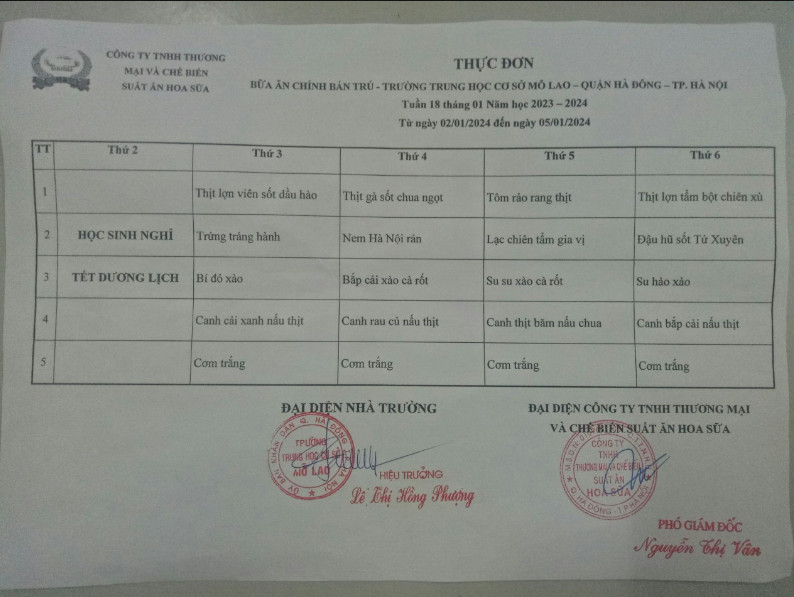 CÔNG TY TNHH THƯƠNG
MẠI VÀ CHẾ BIẾN
SUẤT ĂN HOA SỮA
THỰC ĐƠN
BỮA ĂN CHÍNH BÁN TRÚ - TRƯỜNG TRUNG HỌC CƠ SỞ MỖ LAO – QUẬN HÀ ĐÔNG – TP. HÀ NỘI
Tuần 18 tháng 01 Năm học 2023 – 2024
Từ ngày 02/01/2024 đến ngày 05/01/2024
TT Thứ 2 Thứ 3 Thứ 4 Thứ 5 Thứ 6
1 Thịt lợn viên sốt dầu hào Thịt gà sốt chua ngọt Tôm rảo rang thịt Thịt lợn tẩm bột chiên xù
2 HỌC SINH NGHỈ Trứng tráng hành Nem Hà Nội rán Lạc chiên tẩm gia vị Đậu hũ sốt Tứ Xuyên
3 TẾT DƯƠNG LỊCH Bí đỏ xào Bắp cải xào cà rốt Su su xào cà rốt Su hào xào
4 Canh cải xanh nấu thịt Canh rau củ nấu thịt Canh thịt băm nấu chua Canh bắp cải nấu thịt
5 Cơm trắng Cơm trắng Cơm trắng Cơm trắng
ĐẠI DIỆN NHÀ TRƯỜNG
ĐẠI DIỆN CÔNG TY TNHH THƯƠNG MẠI
VÀ CHẾ BIẾN SUẤT ĂN HOA SỮA
ỦY BAN NHÂN DÂN Q. HÀ ĐÔNG
TRƯỜNG
TRUNG HỌC CƠ SỞ
MỖ LAO
HIỆU TRƯỞNG
Lê Thị Hồng Phượng
CÔNG TY
TNHH
THƯƠNG MẠI VÀ CHẾ BIẾN
SUẤT ĂN
HOA SỮA
Q. HÀ ĐÔNG - T.P HÀ NỘI
PHÓ GIÁM ĐỐC
Nguyễn Thị Vân